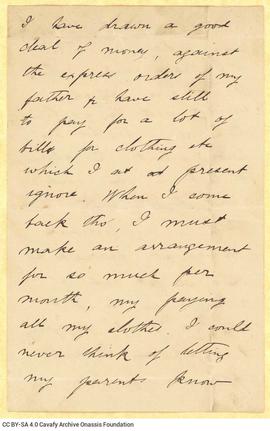 I have drawn a good
deal of money, against
the express orders of my
father & have still
to pay for a lot of
bills for clothing etc
which I at present
ignore. When I come
back tho', I must
make an arrangement
for so much per
month, my paying
all my clothes. I could
never think of letting
my parents know
CC BY-SA 4.0 Cavafy Archive Onassis Foundation